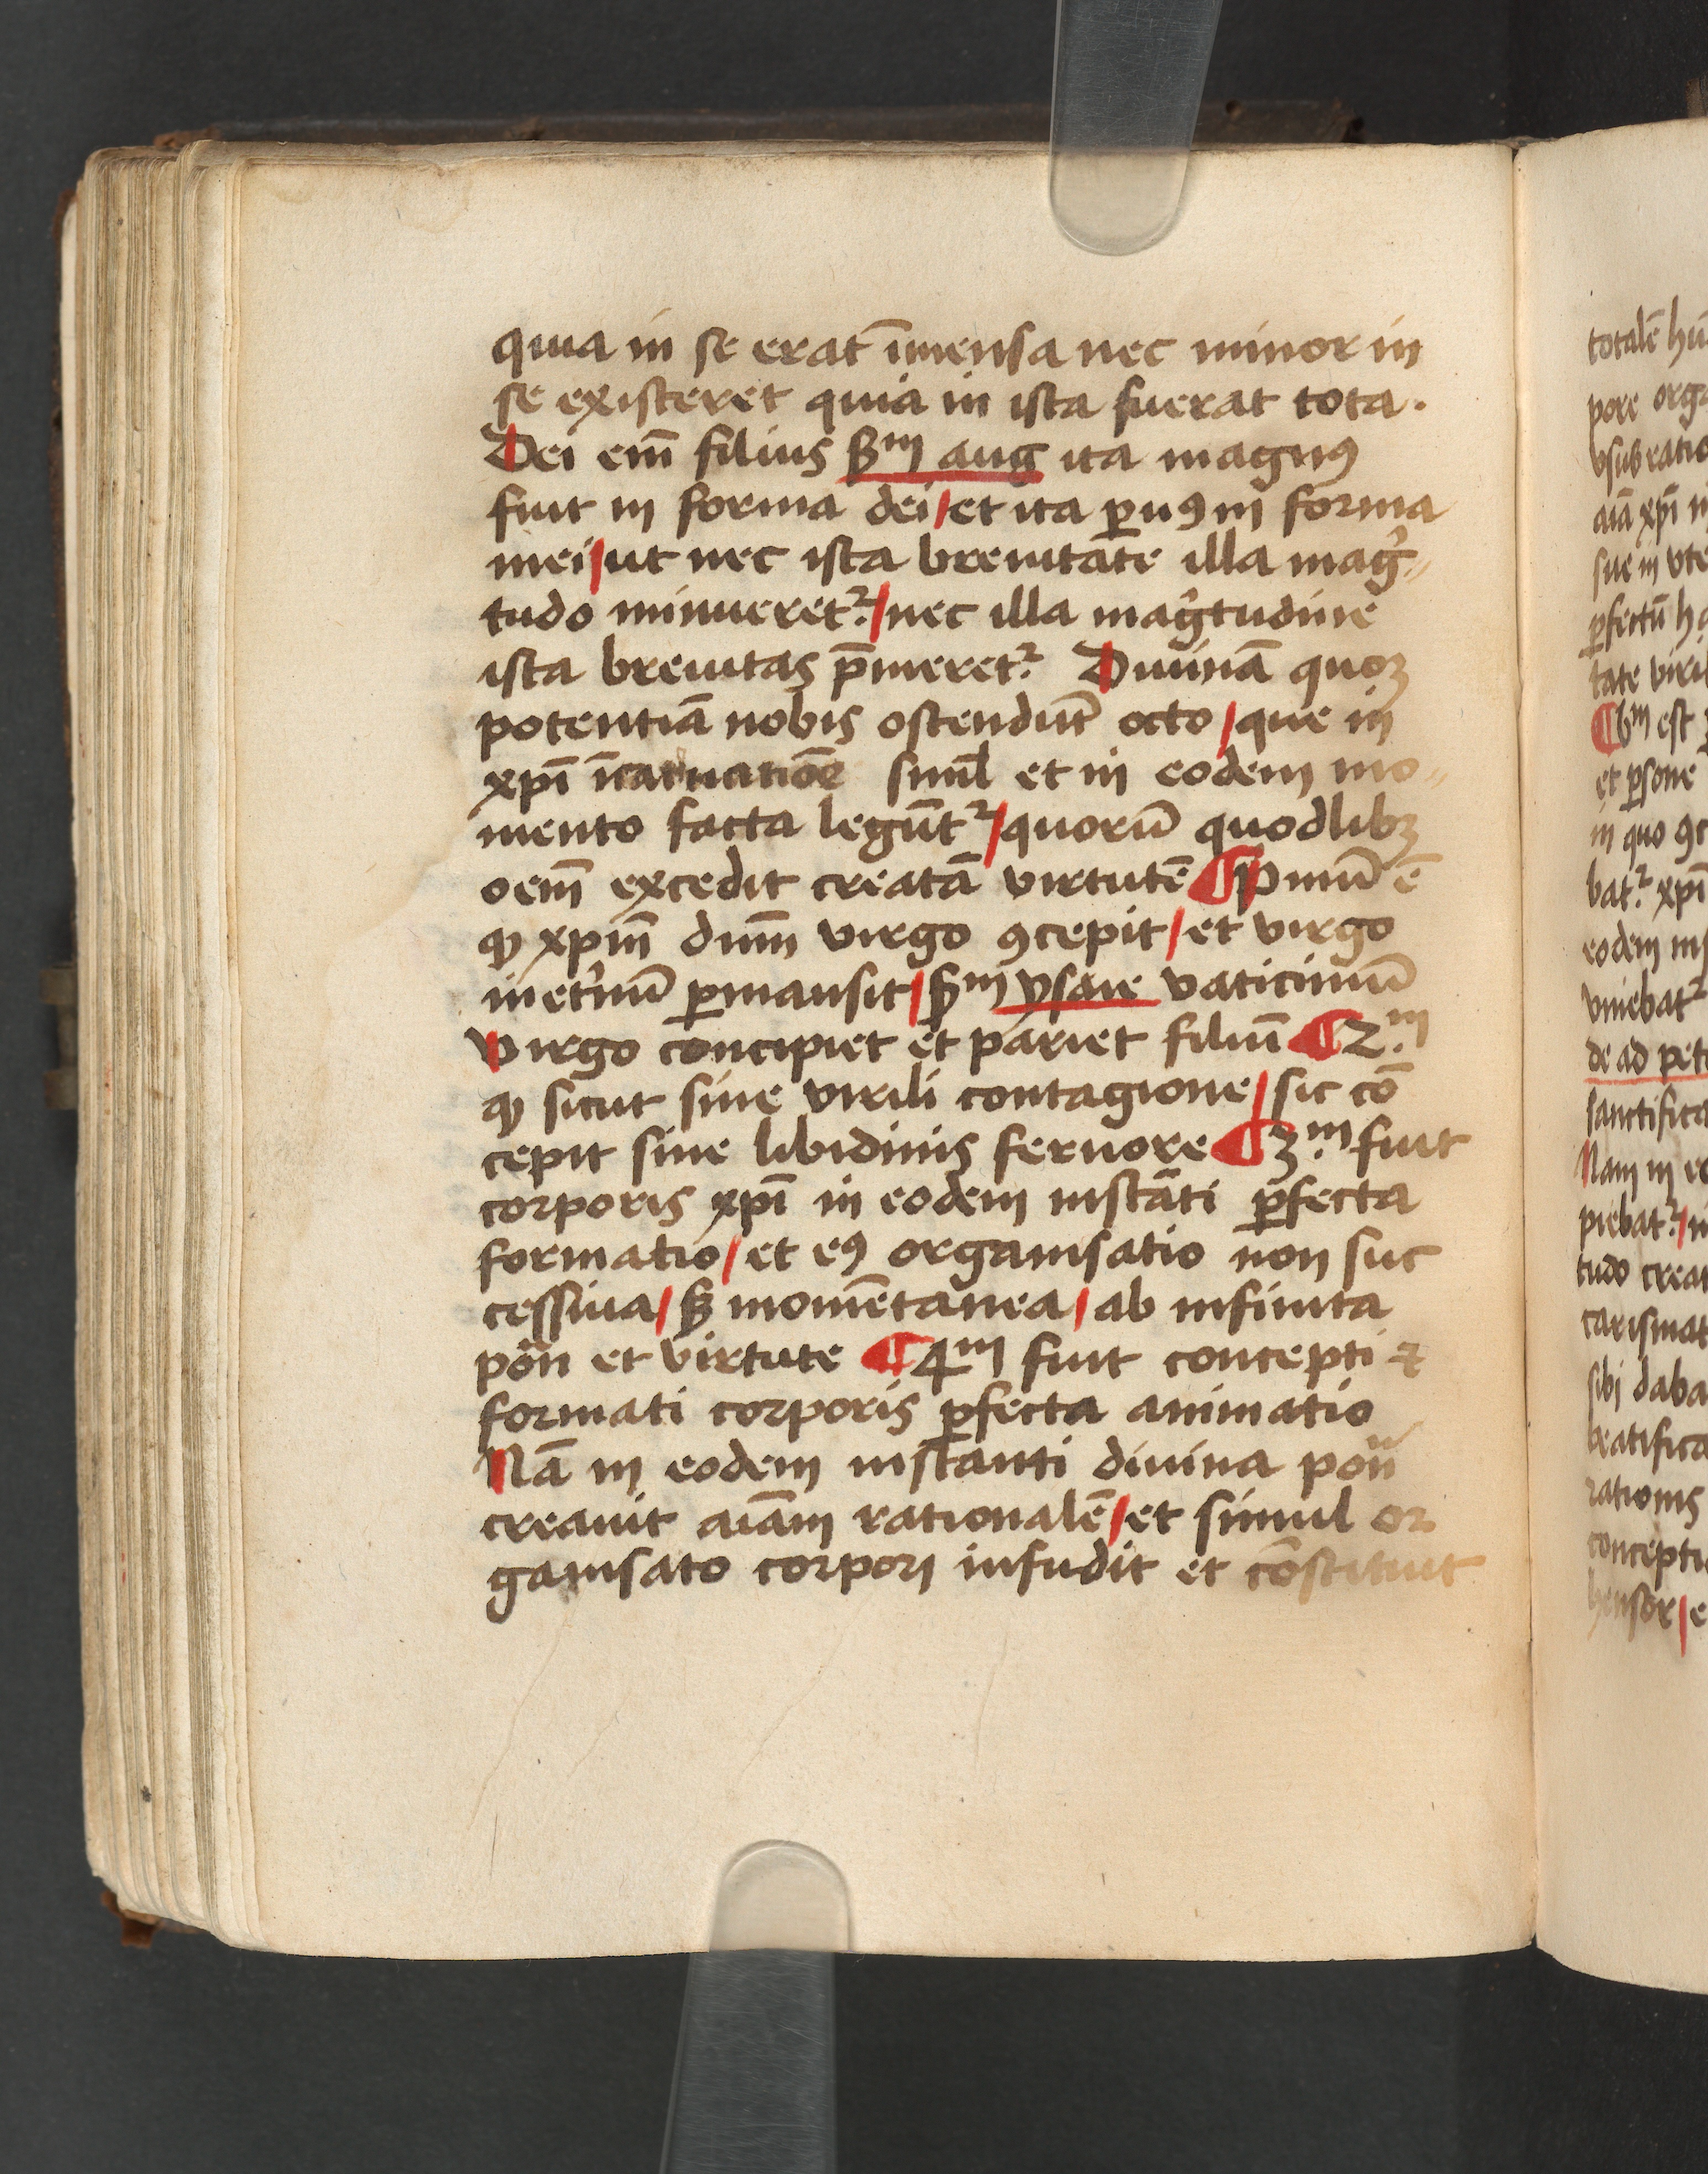 quia in se erat īmensa nec minor in
se existeret quia in ista fuerat tota.
Dei em̄ filius ẜm aug ita magnꝰ
fuit in forma dei/et ita ꝑuꝰ in forma
mei/ut nec ista breuitate illa mag̾
tudo minueret᷑/nec illa mag̾tudine
ista breuitas p̄meret᷑ Diuinā quoꝫ
potentiā nobis ostendūt octo/que in
xp̄i īcarnatiōe simul et in eodem mo
mento facta legūt᷑/quorū quodlibꝫ
oem̄ excedit creatā virtutē ¶Pͥmū ē
ꝙ xpm̄ dnm̄ virgo ꝯcepit/et virgo
inet̾nū ꝑmansit/ẜm ysaie vaticiniū
Virgo concipiet et pariet filiū ¶2.m
ꝙ sicut sine virili contagione/sic cō
cepit sine libidinis feruore ¶3.m fuit
corporis xp̄i in eodem instāti ꝑfecta
formatio/et eꝰ organisatio non suc
cessiua/ẜ momētanea/ab infinita
pōn et virtute ¶4m fuit concepti ⁊
formati corporis ꝑfecta animatio
Nā in eodem instanti diuina pōn
creauit aīam rationalē/et simul or
ganisato corpori infudit et cōstituit
totalē hū
pore orga
vsub ratio
aīā xp̄i
sue in vte
ꝑfectū
tate viril
¶6m est
et ꝑsone
in quo
bat᷑ xp̄i
eodem
vniebat᷑
de ad pet
sanctifica
Nam in
piebat᷑/
tudo crea
carismat
sibi daba
beatifica
rationis
concepti
hensor/e